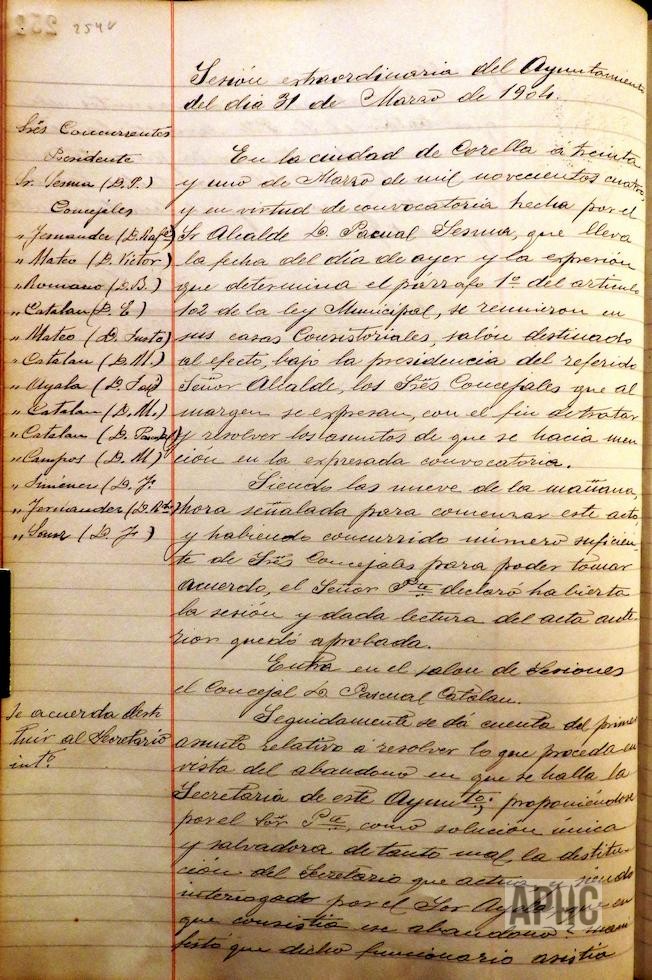 254v
Sesión extraordinaria del Ayuntamiento
del dia 31 de Marzo de 1904.
Srēs Concurrentes
Presidente
Sr. Sesma (D. P.)
Concejales
" Fernandez (D. Raf.)
" Mateo (D. Victor)
" Romano (D. B.)
" Catalan (D. E)
" Mateo (D. Justo)
" Catalan (D. M.)
" Ayala (D.
" Catalan (D. M.)
" Catalan (D. Pascual)
" Campos (D. M)
" Jiménez (D. J.
" Fernandez (D.
" Sanz (D. J)
En la ciudad de Corella á treinta
y uno de Marzo de mil novecientos cuatro,
y en virtud de convocatoria hecha por el
Sr Alcalde D. Pascual Sesma, que lleva
la fecha del día de ayer y la expresión
que determina el parrafo 1º del articulo
102 de la ley Municipal, se reunieron en
sus casas Consistoriales, salón destinado
al efecto, bajo la presidencia del referido
Señor Alcalde, los Srēs Concejales que al
margen se expresan, con el fin de tratar
y resolver los asuntos de que se hacia men
ción en la expresada convocatoria.
Siendo las nueve de la mañana,
hora señalada para comenzar este acto,
y habiendo concurrido número suficien
te de Srēs Concejales para poder tomar
acuerdo, el Señor Pte declaró habierta
la sesión y dada lectura del acta ante
rior quedó aprobada.
Entra en el salon de Sesiones
el Concejal D. Pascual Catalan.
Se acuerda desti
tuir al Secretario
intº.
Seguidamente se dá cuenta del primer
asunto relativo á resolver lo que proceda en
vista del abandono en que se halla la
Secretaria de este Ayuntto; proponiéndose
por el Sor Pte, como solución única
y salvadora de tanto mal, la destitu
ción del Secretario que actua y siendo
interrogado por el Sor Ayala que en
que consistia ese abandono? mani
festó que dicho funcionario asistia
APHC